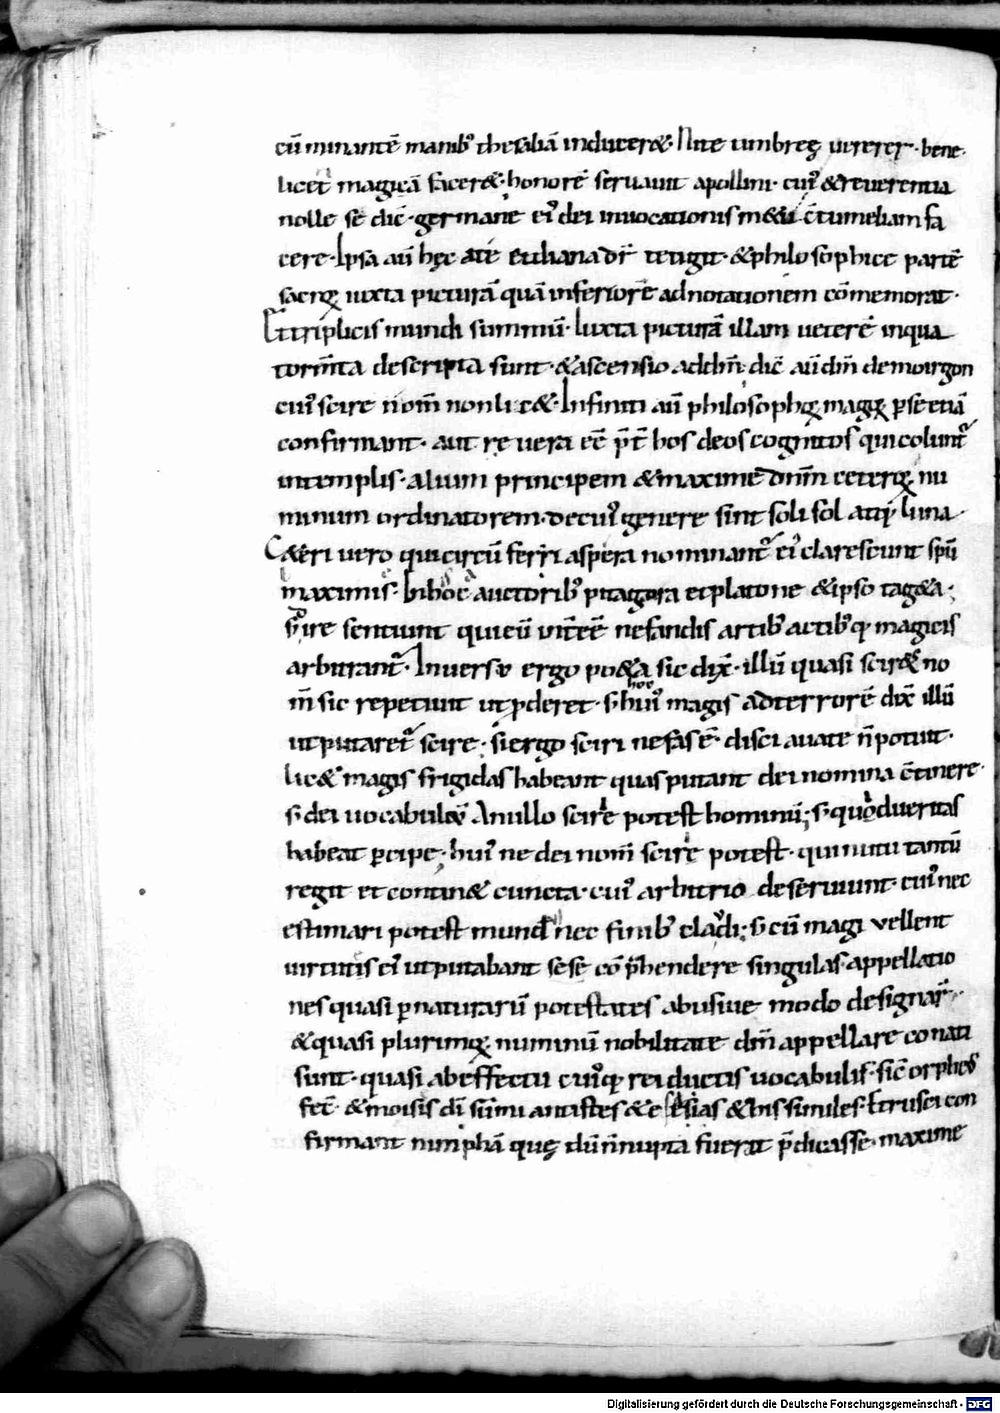 cũ minantẽ manibꝰ thesaliã inducer&. Nite umbreę uererer. bene.
licet magicã facer&. honorẽ seruauit apollini. cuiꝰ & reuerentia
nolle sẽ dic̃. germane eiꝰ dei inuocationis medii c̃tumeliam fa
cere. Ipsa aũ hęc ate tetigit. & philosophice partẽ
sacrꝝ iuxta picturã quã inferiorẽ adnotationem cõmemorat.
Et triplicis mundi summũ. Iuxta picturã illam ueterẽ inqua
torm̃ta descripta sunt. & ascensio addm̃ dic̃ aũ dm̃ demoirgon
cuiꝰ scire nom̃ non lic&. Infiniti aũ philosophoꝝ magoꝝ p̱se etiã
confirmant. aut re uera eẽ p̃t̃ hos deos cognitos qui coluntᷣ
intemplis. alium principem & maxime dnm̃ ceteroꝝ nu
minum ordinatorem. de cuiꝰ genere sint soli sol atq; luna.
Ceteri uero qui circũferri aspera nominantᷣ eiꝰ clarescunt spũ
maximis. In hoc auctoribꝰ pitagora et platone & ipso tag&a.
s;ire sentiunt qui eũ int̃eẽ nefandis artibꝰ actibꝰq; magicis
arbitrantᷣ. In uersu ergo po&a sic dix̃. illũ quasi scir& no
m̃ sic repetiuit ut p̱deret. s; huiꝰ magis ad terrorẽ dix̃ illũ
ut putaretᷣ scire. si ergo sciri nefas ẽ. disci a uate ñ potuit.
lic& magi sfrigidas habeant quas putant dei nomina c̃tinere.
s; dei uocabulũ A nullo scire potest hominũ; s; quid ueritas
habeat p̱cipe. huiꝰ ne dei nom̃ scire potest. qui nutu tantũ
regit et contin& cuncta. cuiꝰ arbitrio deseruiunt. cuiꝰ nec
estimari potest mundꝰ nec finibꝰ claudi; s; cũ magi vellent
uirtutis eiꝰ ut putabant sese cõp̃hendere singulas appellatio
nes quasi p̱ naturarũ potestates abusiue modo designar̃.
& quasi plurimoꝝ numinũ nobilitate dm̃ appellare conati
sunt. quasi ab effectu cuiꝰq; rei ductis uocabulis. sic̃ orpheꝰ
fec̃. & moisis di sũmi antistes & esaias & his similes. Etrusci con
firmant nimphã quę dũ ñ nupta fuerat p̃dicasse. maxime
Digitalisierung gefördert durch die Deutsche Forschungsgemeinschaft - DFG